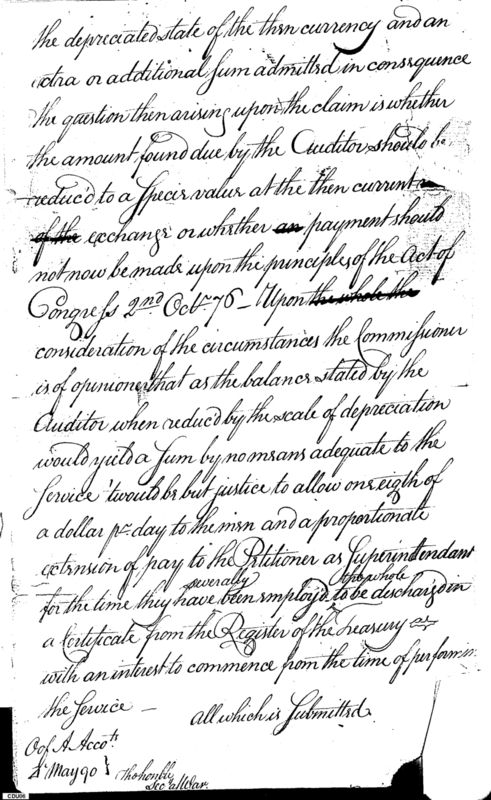 the depreciated state of the then currency and an
extra or additional Sum admitted in consequence
the question then arising upon the claim is whether
the amount found due by the Auditor should be
reduc'd to a Specie value at the then current
of the exchange or whether an payment should
not now be made upon the principles of the Act of
Congress 2nd Octr 76 - Upon the whole the
consideration of the circumstances the Commissioner
is of opinion that as the balance stated by the
Auditor when reduc'd by the scale of depreciation
would yield a Sum by no means adequate to the
Service 'twould be but justice to allow one eigth of
a dollar pr day to the men and a proportionate
extension of pay to the Petitioner as Superintendant
severally the whole
for the time they have been employ'd to be discharg'd in
a Certificate from the Register of the Treasury
with an interest to commence from the time of performin
the Service -
all which is Submitted.
O of A Accots
May 90 }
The honble
Sec at War.
CDU06